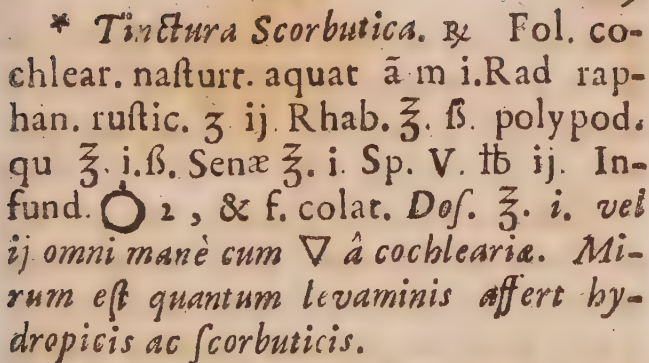 * Tinctura Scorbutica. ℞ Fol. co-
chlear. naſturt. aquat ā m i. Rad rap-
han. ruſtic. ʒ ij. Rhab. ℥. ß. polypod.
qu ℥. i.ß. Senæ ℥. i. Sp. V. ℔ ij. In-
fund. 🜔 2, & f. colat. Doſ. ℥. i. vel
ij omni manè cum ▽ â cochleariæ. Mi-
rum eſt quantum levaminis affert hy-
dropicis ac ſcorbuticis.